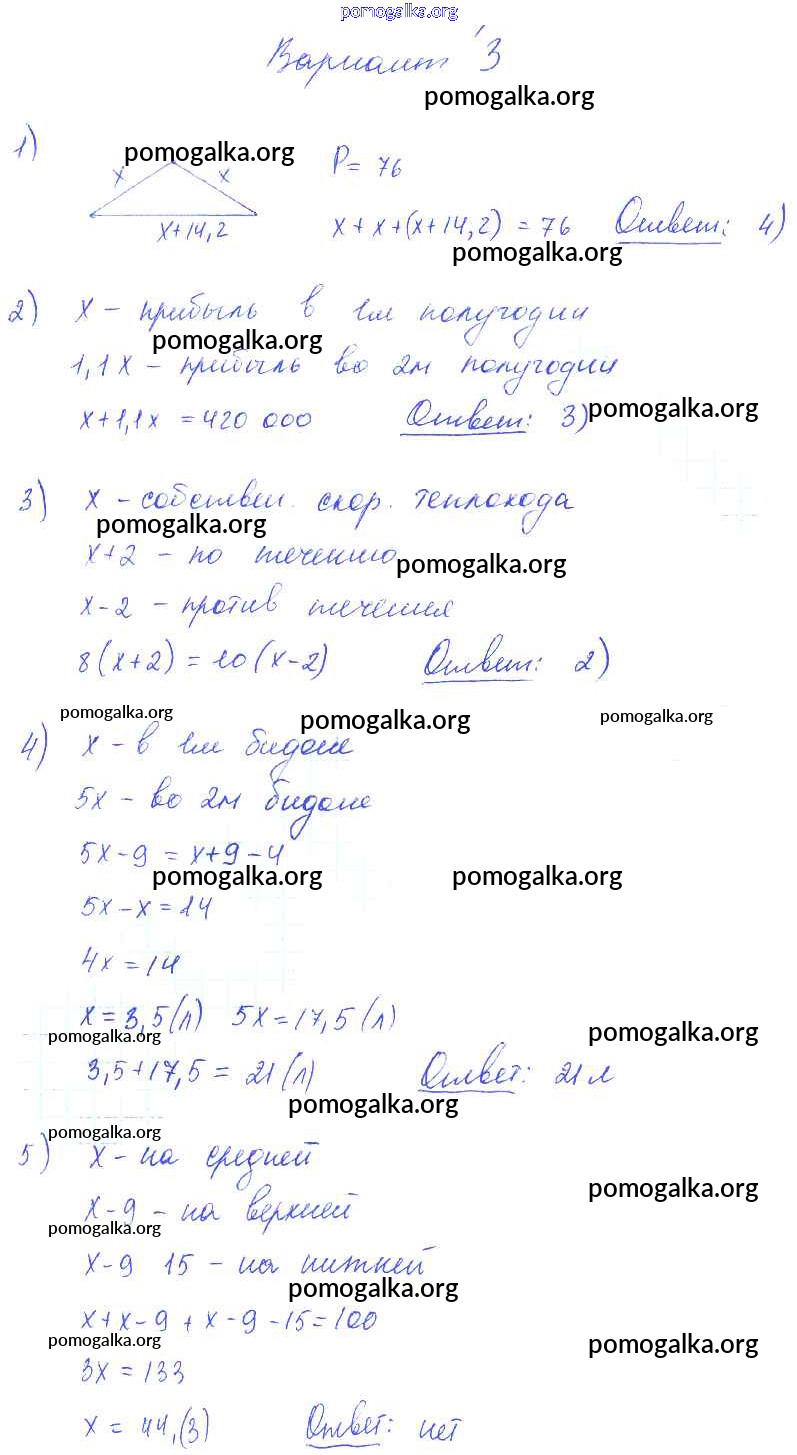 pomogalka.org
Вариант 3
pomogalka.org
1)
pomogalka.org
P = 76
x
x
x+14,2
x + x + (x+14,2) = 76 Ответ: 4)
pomogalka.org
2) x - прибыль в 1м полугодии
pomogalka.org
1,1x - прибыль во 2м полугодии
x+1,1x = 420 000 Ответ: 3)
pomogalka.org
3) x - собствен. скор. теплохода
pomogalka.org
x+2 - по течению
pomogalka.org
x-2 - против течения
8(x+2) = 10(x-2) Ответ: 2)
pomogalka.org pomogalka.org pomogalka.org
4) x - в 1м бидоне
5x - во 2м бидоне
5x-9 = x+9-4
pomogalka.org pomogalka.org
5x-x = 14
4x = 14
x = 3,5(л) 5x = 17,5(л)
pomogalka.org pomogalka.org
3,5+17,5 = 21(л) Ответ: 21л
pomogalka.org
pomogalka.org
5) x - на средней
pomogalka.org
x-9 - на верхней
pomogalka.org
x-9 15 - на нижней
pomogalka.org
x+x-9+x-9-15=100
pomogalka.org pomogalka.org
3x = 133
x = 44,(3) Ответ: нет